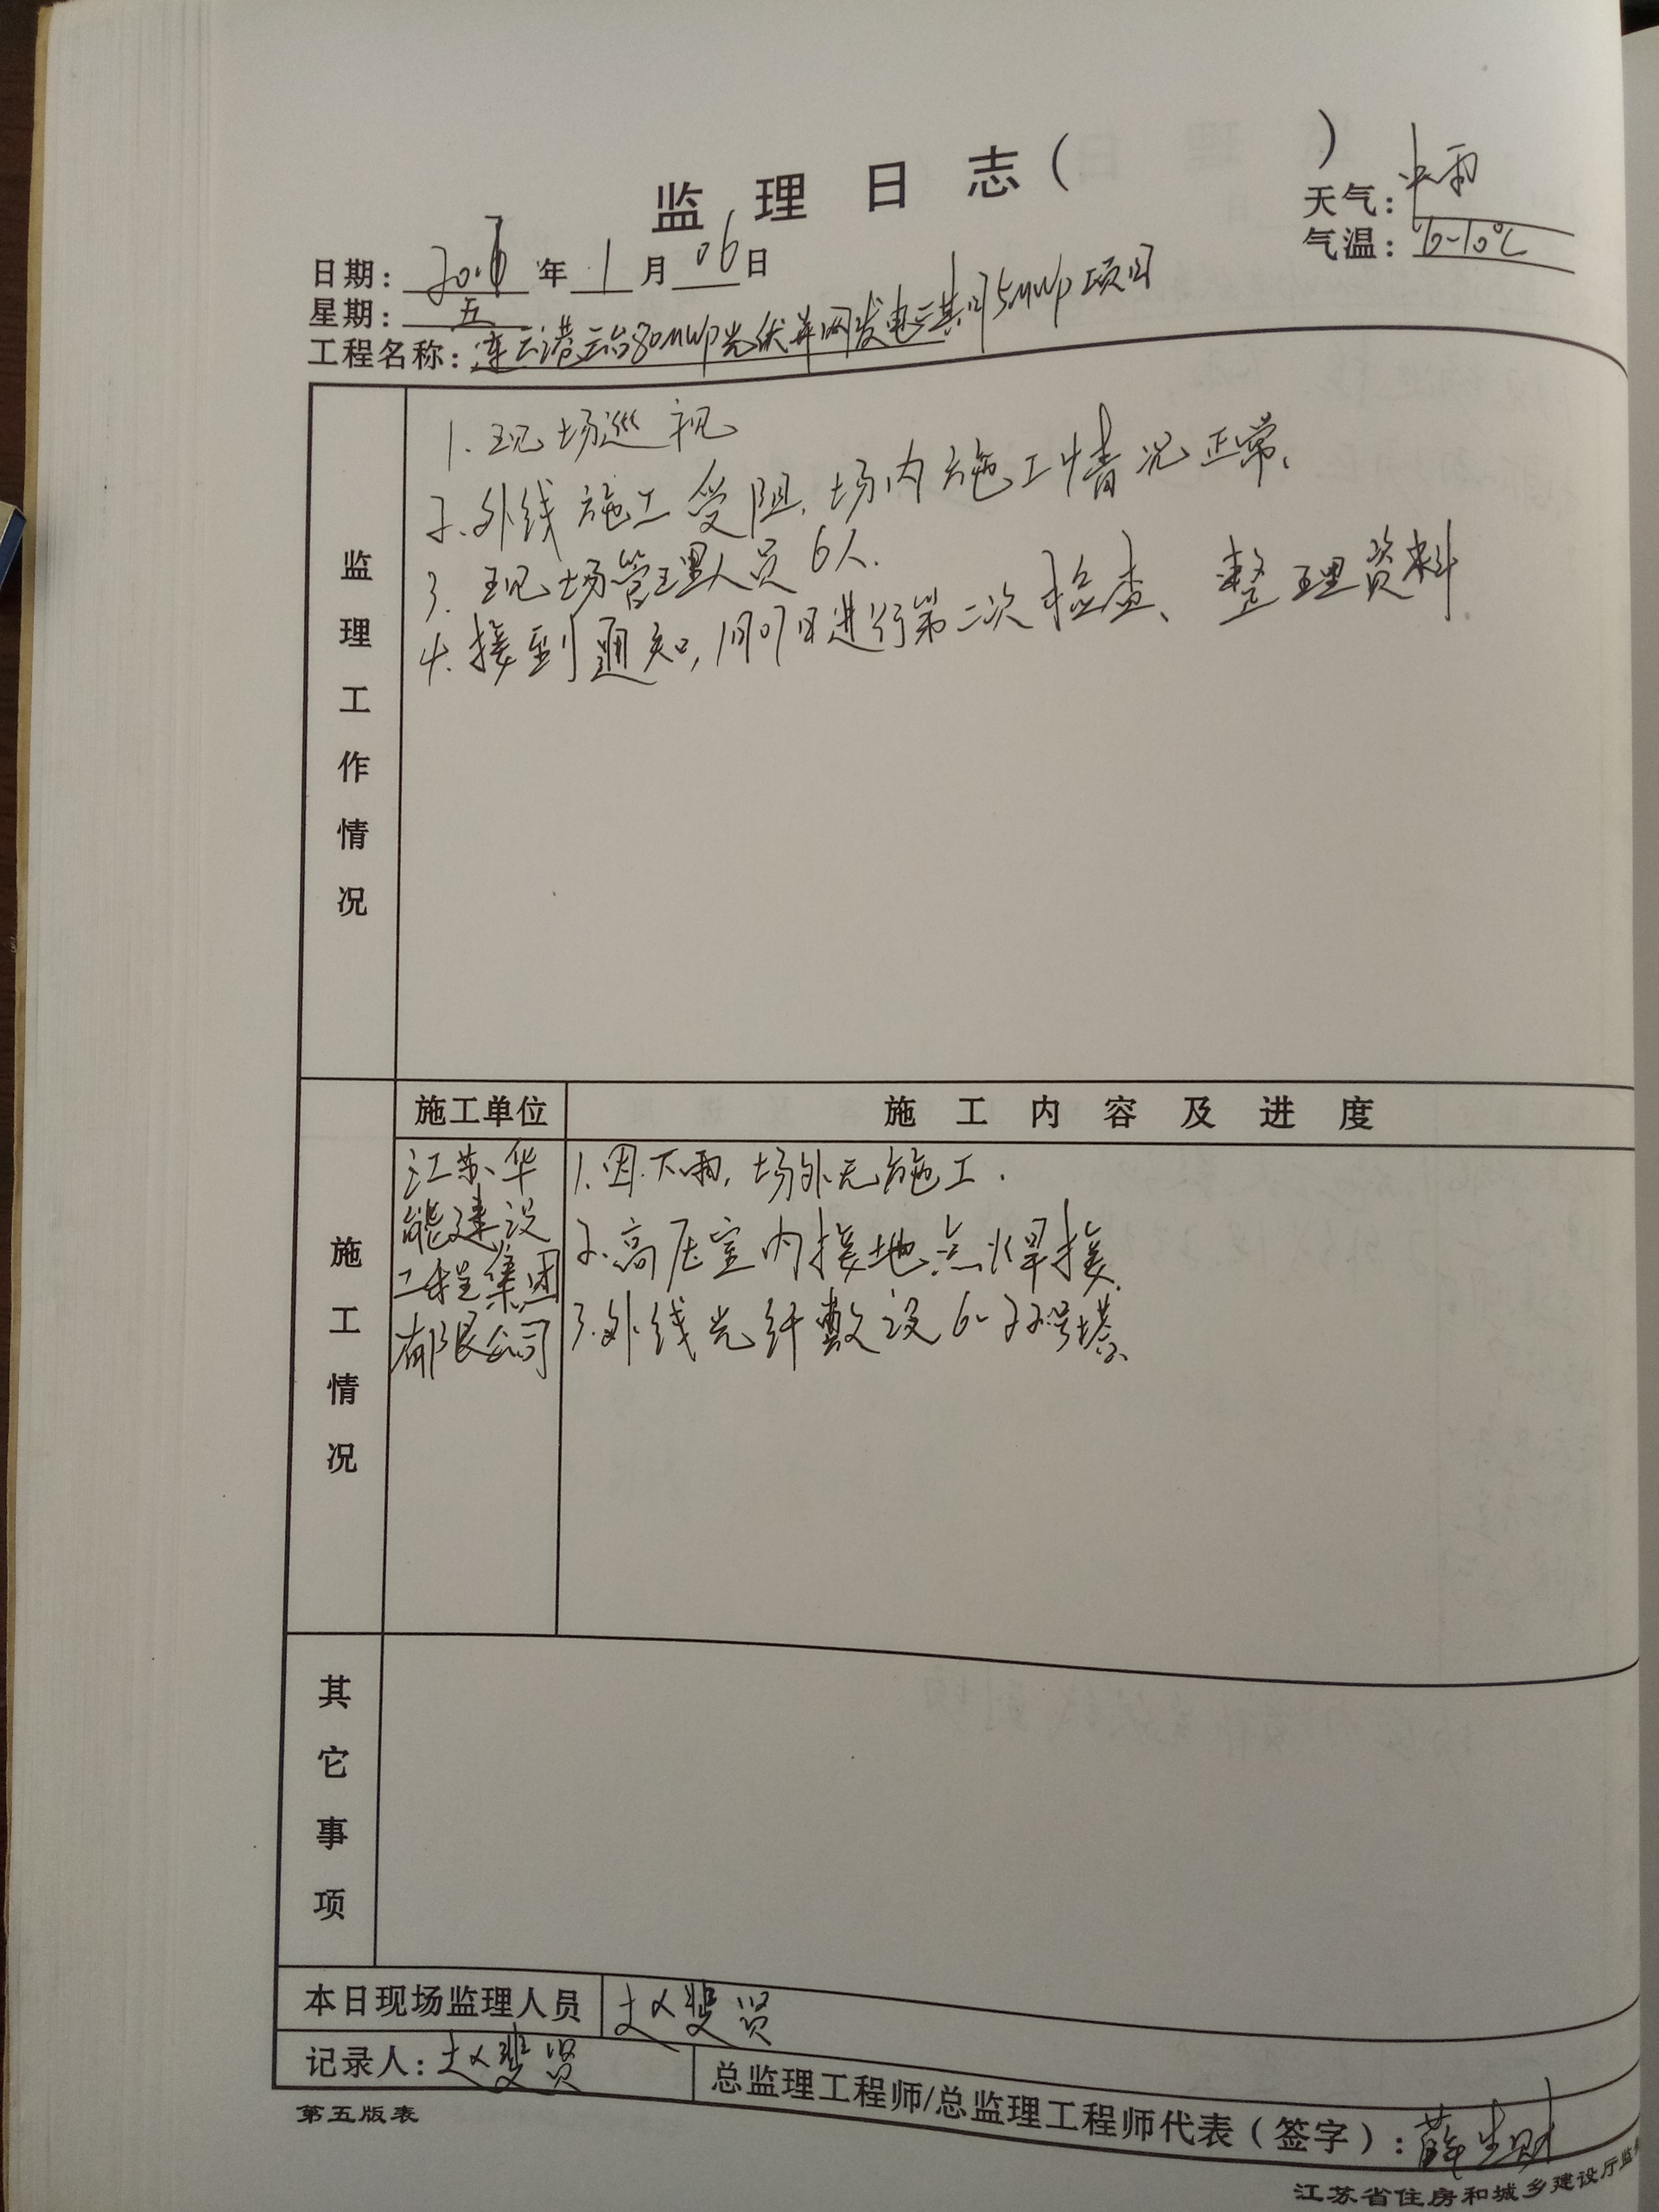 监理日志（ ）
天气：中雨
日期：2017年1月06日
气温：10-10℃
星期：五
工程名称：连云港云台80MWp光伏并网发电三期75MWp项目
监理工作情况
1.现场巡视
2.外线施工受阻，场内施工情况正常、
3.现场管理人员6人.
4.接到通知，1月07日进行第二次检查、整理资料.
施工单位 施工内容及进度
施工情况
江苏华
能建设
工程集团
有限公司
1.因下雨，场外无施工.
2.高压室内接地点焊接.
3.外线光纤敷设6-22号塔、
其它事项
本日现场监理人员 赵斐贤
记录人：赵斐贤
总监理工程师/总监理工程师代表（签字）：薛生财
第五版表
江苏省住房和城乡建设厅监